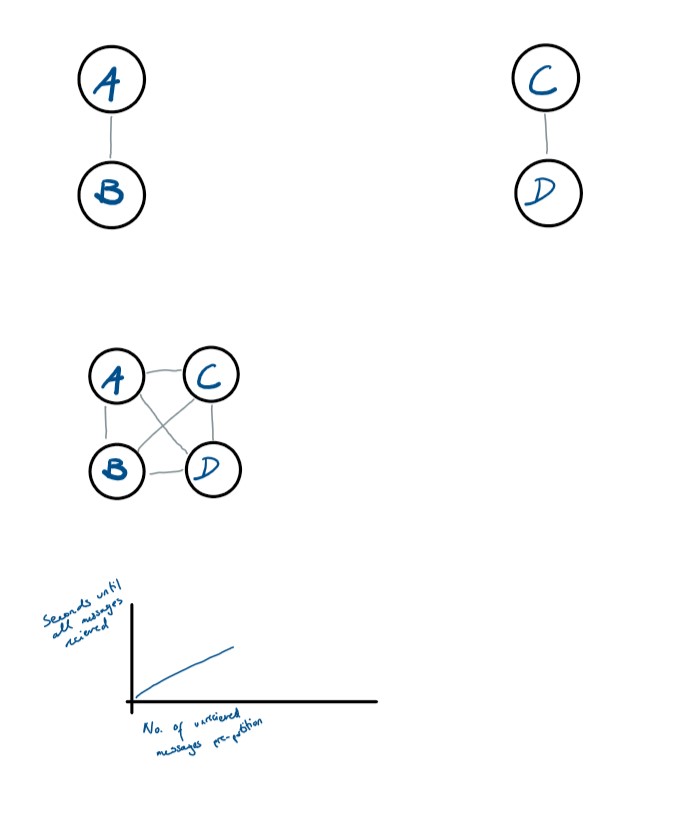 A
C
B
D
A
C
B
D
Seconds until
all messages
recieved
No. of unrecieved
messages pre-partition